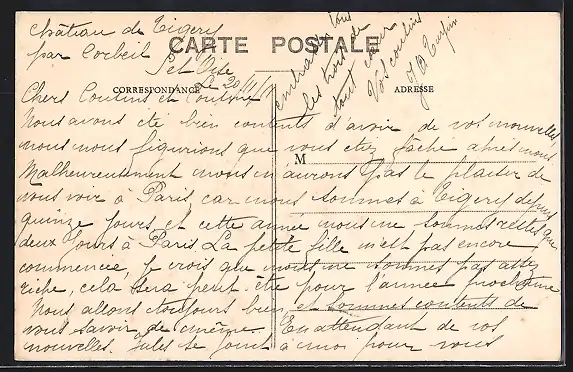 Château de Tigery
par Corbeil
S et Oise
CARTE POSTALE
CORRESPONDANCE
ADRESSE
M
Le 20/11/
Chers Cousins et Cousine
Nous avons été bien contents d'avoir de vos nouvelles
nous nous figurions que vous étiez fâché après nous
Malheureusement nous n'aurons pas le plaisir de
vous voir à Paris car nous sommes à Tigery depuis
quinze jours et cette année nous ne sommes restés que
deux jours à Paris La petite fille n'est pas encore
commencée, je crois que nous ne sommes pas assez
riche, cela sera peut-être pour l'année prochaine
Nous allons toujours bien, et sommes contents de
vous savoir de même. En attendant de vos
nouvelles. Jules se joint à moi pour vous
embrasser tous
les trois de
tout cœur
Vos cousins
J B Turpin